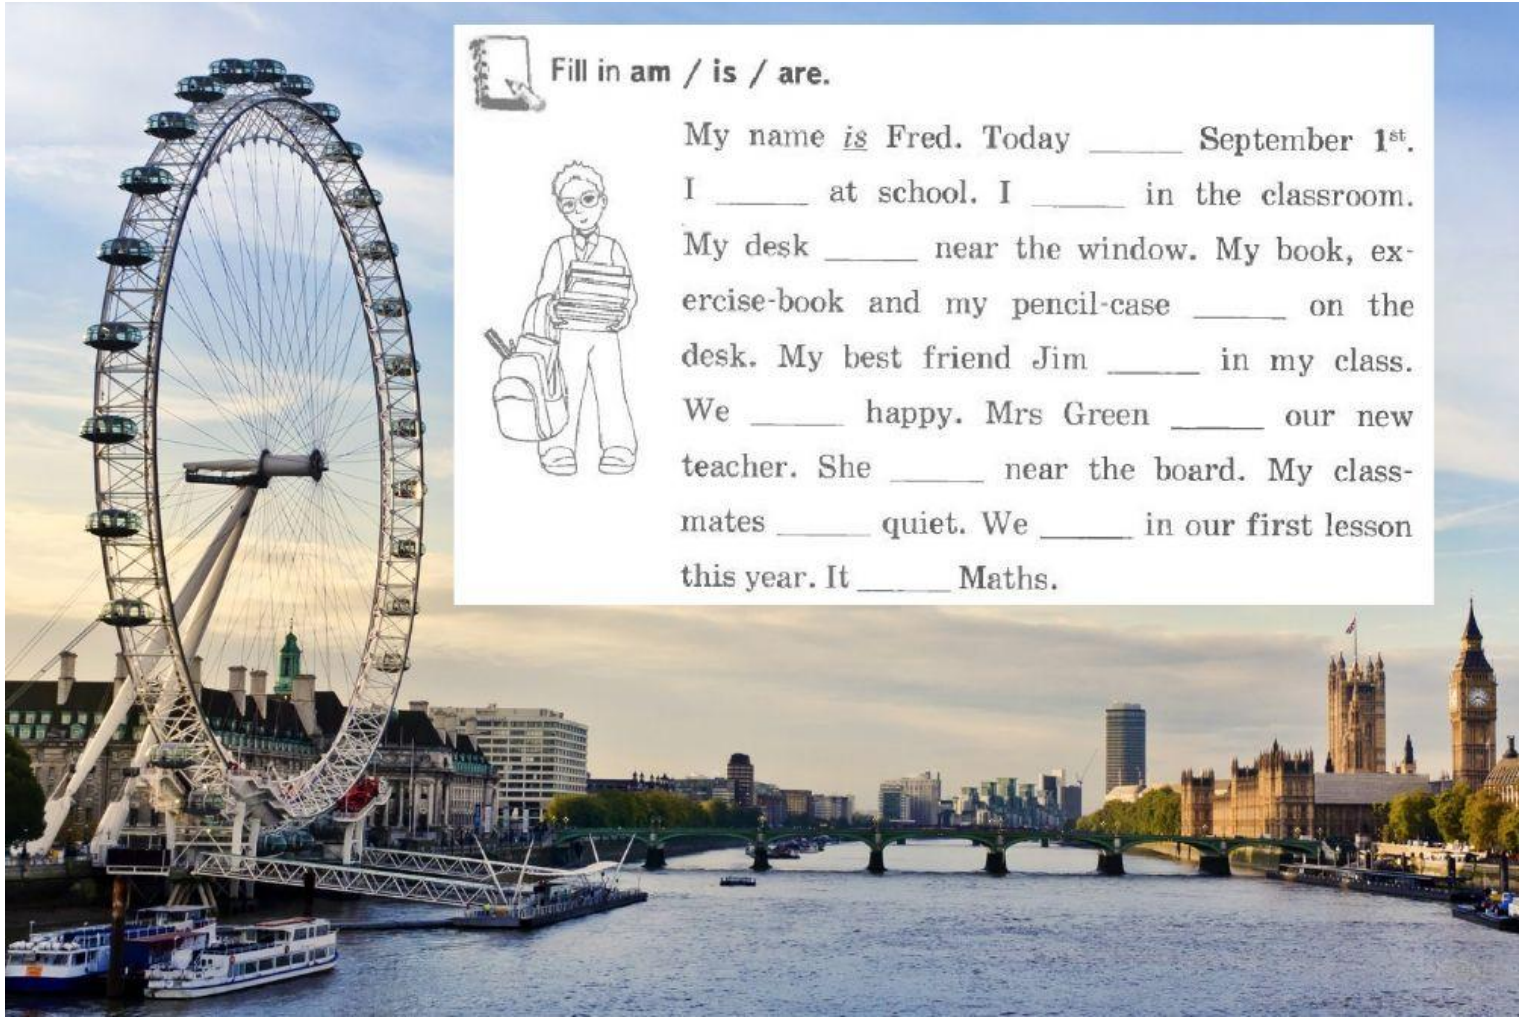 Fill in am / is / are.
My name is Fred. Today ______ September 1st.
I ______ at school. I ______ in the classroom.
My desk ______ near the window. My book, ex-
ercise-book and my pencil-case ______ on the
desk. My best friend Jim ______ in my class.
We ______ happy. Mrs Green ______ our new
teacher. She ______ near the board. My class-
mates ______ quiet. We ______ in our first lesson
this year. It ______ Maths.